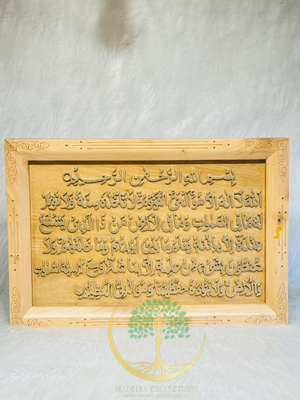 بسم الله الرحمن الرحيم
الله لا إله إلا هو الحي القيوم لا تأخذه سنة ولا نوم له
ما في السماوات وما في الأرض من ذا الذي يشفع
عنده إلا بإذنه يعلم ما بين أيديهم وما خلفهم ولا
يحيطون بشيء من علمه إلا بما شاء وسع كرسيه السماوات
والأرض ولا يؤوده حفظهما وهو العلي العظيم